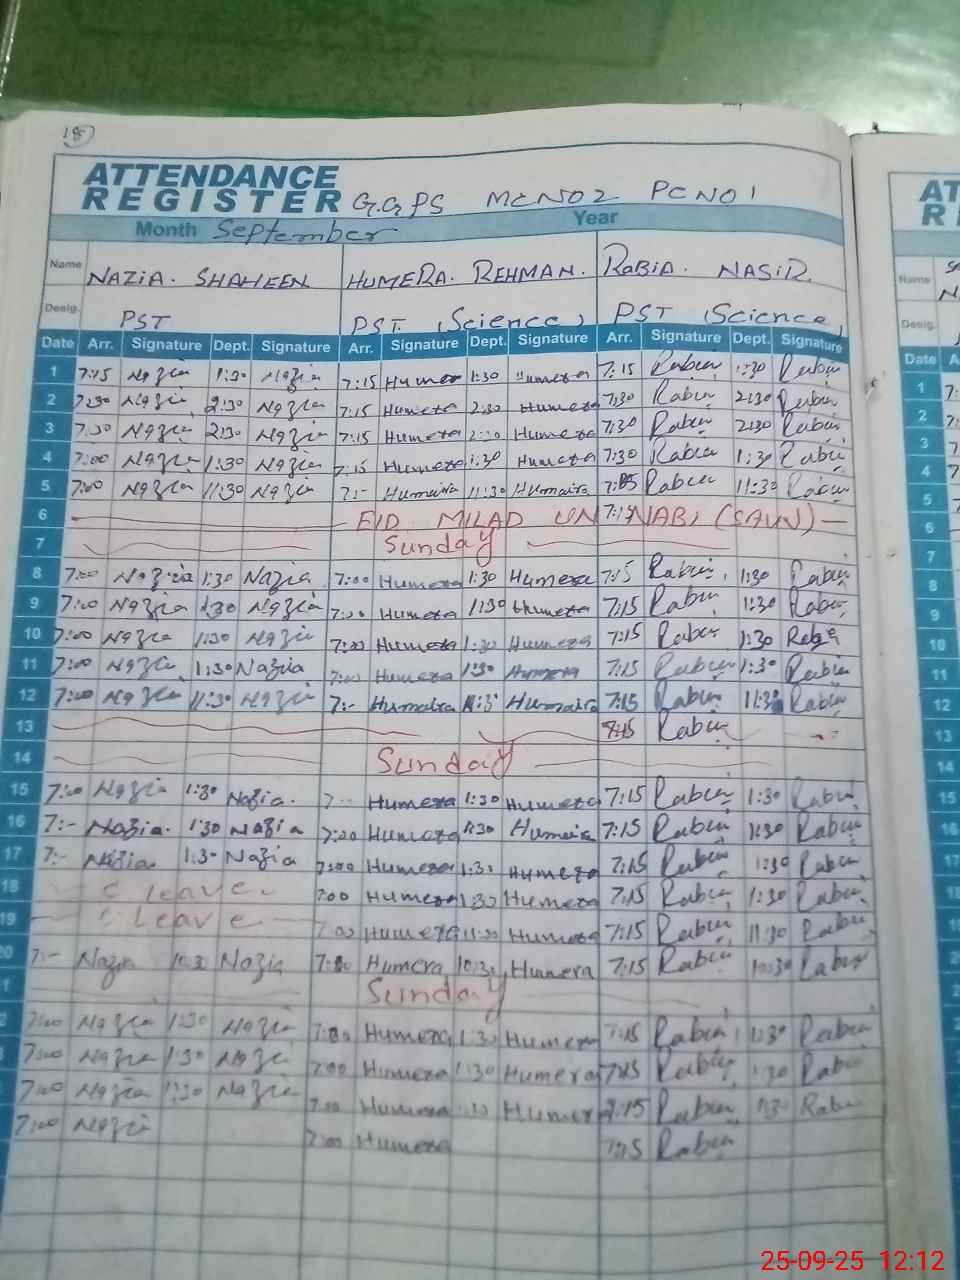 18
ATTENDANCE
REGISTER G.G.PS MCNO2 PCNO1
Month September Year
Name NAZIA. SHAHEEN HUMERA. REHMAN. RABIA. NASIR.
Desig. PST PST. (Science) PST (Science)
Date Arr. Signature Dept. Signature Arr. Signature Dept. Signature Arr. Signature Dept. Signature
1 7:15 Nazia 1:30 Nazia 7:15 Humera 1:30 Humera 7:15 Rabia 1:30 Rabia
2 7:30 Nazia 2:30 Nazia 7:15 Humera 2:30 Humera 7:30 Rabia 2:30 Rabia
3 7:30 Nazia 2:30 Nazia 7:15 Humera Humera 7:30 Rabia 2:30 Rabia
4 7:00 Nazia 1:30 Nazia 7:15 Humera 1:30 Humera 7:30 Rabia 1:30 Rabia
5 7:00 Nazia 11:30 Nazia 7:- Humaira 11:30 Humaira Rabia 11:30 Rabia
6 EID MILAD UN NABI (SAW)
7 Sunday
8 7:00 Nazia 1:30 Nazia 7:00 Humera 1:30 Humera 7:15 Rabia 1:30 Rabia
9 7:00 Nazia 1:30 Nazia 7:00 Humera 1:30 Humera 7:15 Rabia 1:30 Rabia
10 7:00 Nazia 1:30 Nazia 7:00 Humera 1:30 Humera 7:15 Rabia 1:30 Rabia
11 7:00 Nazia 1:30 Nazia 7:00 Humera 1:30 Humera 7:15 Rabia 1:30 Rabia
12 7:00 Nazia 11:30 Nazia 7:- Humaira Humaira 7:15 Rabia 11:30 Rabia
13 7:15 Rabia
14 Sunday
15 7:00 Nazia 1:30 Nazia. Humera 1:30 Humera 7:15 Rabia 1:30 Rabia
16 7:- Nazia. 1:30 Nazia 7:00 Humera 1:30 Humera 7:15 Rabia 1:30 Rabia
17 7:- Nazia 1:30 Nazia 7:00 Humera 1:30 Humera 7:15 Rabia 1:30 Rabia
18 C leave 7:00 Humera 1:30 Humera 7:15 Rabia 1:30 Rabia
19 Leave 7:00 Humera Humera 7:15 Rabia 11:30 Rabia
20 7:- Nazia 10:30 Nazia 7:00 Humera 10:30 Humera 7:15 Rabia 10:30 Rabia
Sunday
7:00 Nazia 1:30 Nazia 7:00 Humera 1:30 Humera 7:15 Rabia 1:30 Rabia
7:00 Nazia 1:30 Nazia 7:00 Humera 1:30 Humera 7:15 Rabia 1:30 Rabia
7:00 Nazia 1:30 Nazia 7:00 Humera Humera 7:15 Rabia 1:30 Rabia
7:00 Nazia 7:00 Humera 7:15 Rabia
25-09-25 12:12